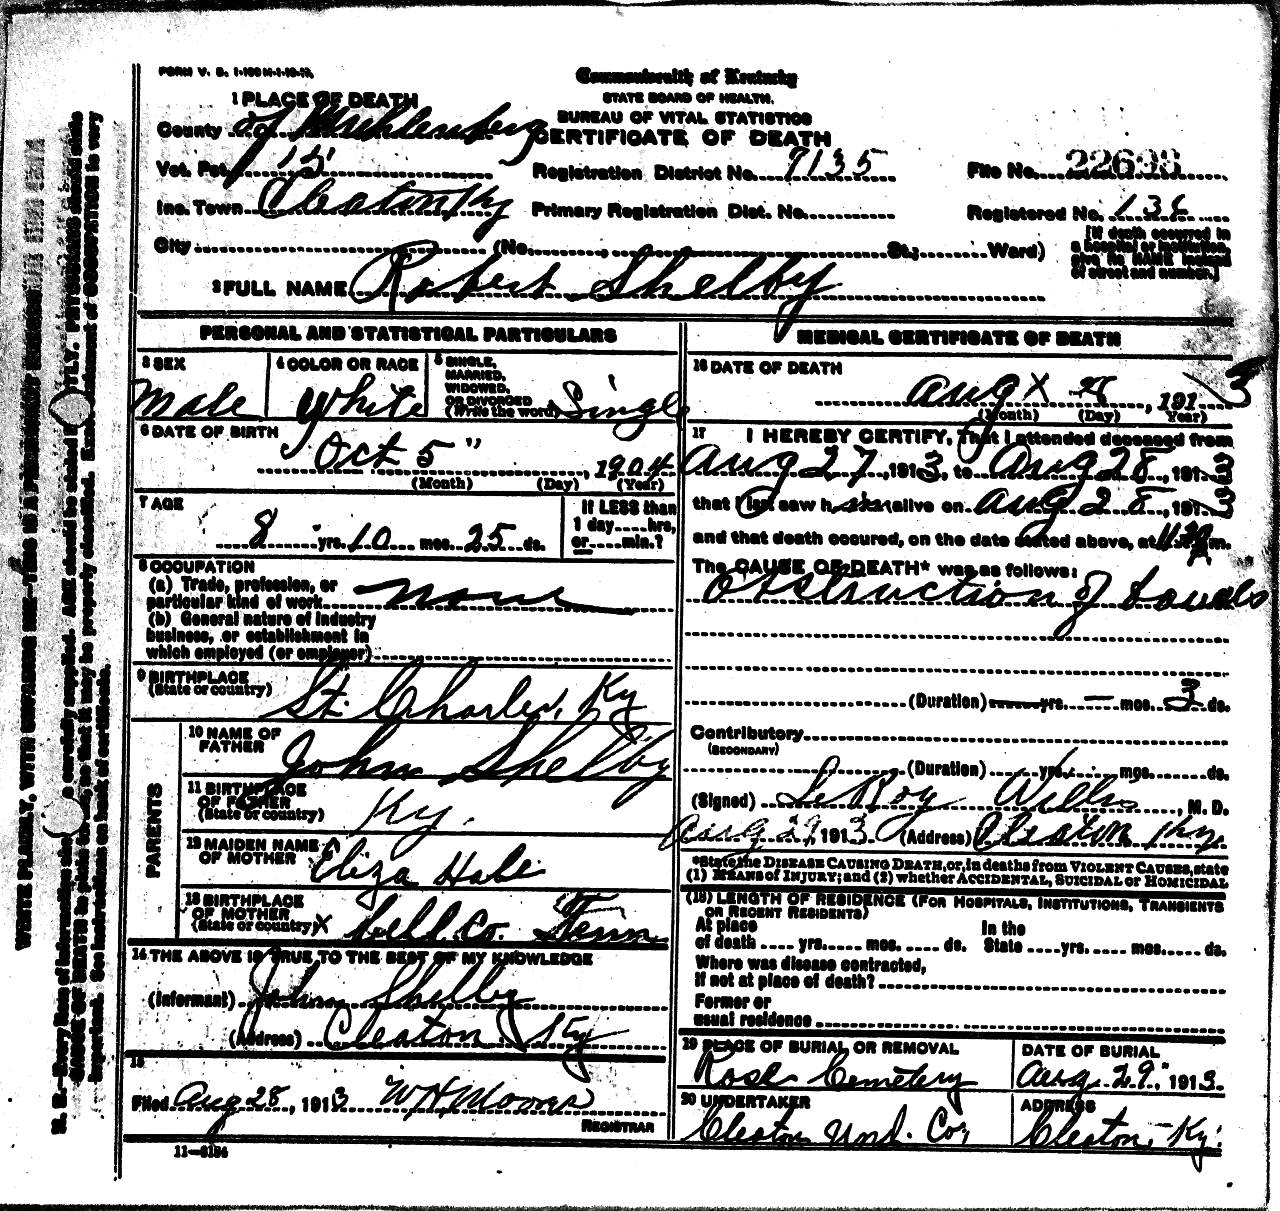 FORM V. S. 1-100
Commonwealth of Kentucky
STATE BOARD OF HEALTH.
BUREAU OF VITAL STATISTICS
CERTIFICATE OF DEATH
1 PLACE OF DEATH
County of Muhlenberg
Vot. Pct. 15
Inc. Town Cleaton Ky
City (No. , St.; Ward)
Registration District No. 7135
Primary Registration Dist. No.
File No. 22693
Registered No.
[If death occurred in
a hospital or institution,
give its NAME instead
of street and number.]
2 FULL NAME Robert Shelby
PERSONAL AND STATISTICAL PARTICULARS
3 SEX
Male
4 COLOR OR RACE
White
5 SINGLE,
MARRIED,
WIDOWED,
OR DIVORCED
(Write the word) Single
6 DATE OF BIRTH
Oct 5", 1904
(Month) (Day) (Year)
7 AGE
8 yrs. 10 mos. 25 ds.
If LESS than
1 day hrs,
or min.?
8 OCCUPATION
(a) Trade, profession, or
particular kind of work None
(b) General nature of industry
business, or establishment in
which employed (or employer)
9 BIRTHPLACE
(State or country) St. Charles, Ky
PARENTS
10 NAME OF
FATHER John Shelby
11 BIRTHPLACE
OF FATHER
(State or country) Ky.
12 MAIDEN NAME
OF MOTHER Eliza Hale
13 BIRTHPLACE
OF MOTHER
(State or country) X Co. Tenn
14 THE ABOVE IS TRUE TO THE BEST OF MY KNOWLEDGE
(Informant) John Shelby
(Address) Cleaton Ky
15
Filed Aug 28, 1913 W H Moores
REGISTRAR
11-3184
MEDICAL CERTIFICATE OF DEATH
16 DATE OF DEATH
Aug X 28, 1913
(Month) (Day) Year)
17 I HEREBY CERTIFY, That I attended deceased from
Aug 27, 1913, to Aug 28, 1913
that I last saw him alive on Aug 28, 1913
and that death occured, on the date stated above, at m.
The CAUSE OF DEATH* was as follows:
Obstruction of bowels
(Duration) yrs. — mos. 3 ds.
Contributory
(SECONDARY)
(Duration) yrs. mos. ds.
(Signed) LeRoy Willis, M. D.
Aug 29, 1913 (Address) Cleaton Ky.
*State the DISEASE CAUSING DEATH, or, in deaths from VIOLENT CAUSES, state
(1) MEANS of INJURY; and (2) whether ACCIDENTAL, SUICIDAL or HOMICIDAL
(18) LENGTH OF RESIDENCE (FOR HOSPITALS, INSTITUTIONS, TRANSIENTS
OR RECENT RESIDENTS)
At place
of death yrs. mos. ds.
In the
State yrs. mos. ds.
Where was disease contracted,
if not at place of death?
Former or
usual residence
19 PLACE OF BURIAL OR REMOVAL
Rose Cemetery
DATE OF BURIAL
Aug 29, 1913
20 UNDERTAKER
Cleaton Und. Co.
ADDRESS
Cleaton, Ky.
WRITE PLAINLY, WITH UNFADING INK—THIS IS A PERMANENT RECORD
N. B.—Every item of information carefully supplied. AGE should be stated PHYSICIANS should state
CAUSE OF DEATH in plain terms, so that it may be properly classified. Exact statement of OCCUPATION is very
important. See instructions on back of certificate.